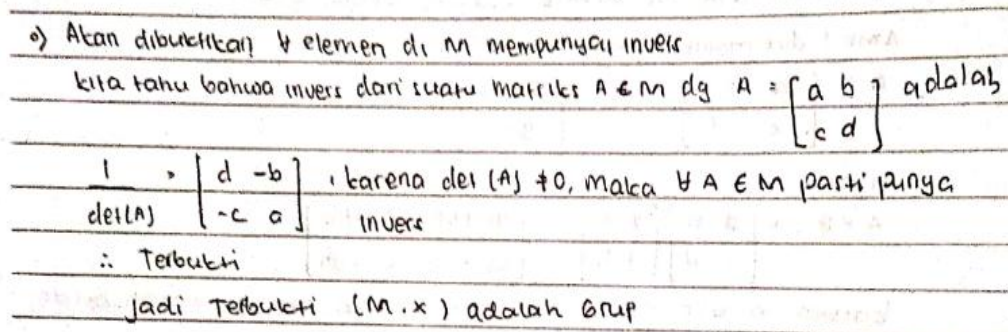 •) Akan dibuktikan ∀ elemen di M mempunyai invers
kita tahu bahwa invers dari suatu matriks A ∈ M dg A = [a b; c d] adalah
1/det(A) • [d -b; -c a] , karena det (A) ≠ 0, maka ∀ A ∈ M pasti punya
invers
∴ Terbukti
jadi Terbukti (M.x) adalah Grup